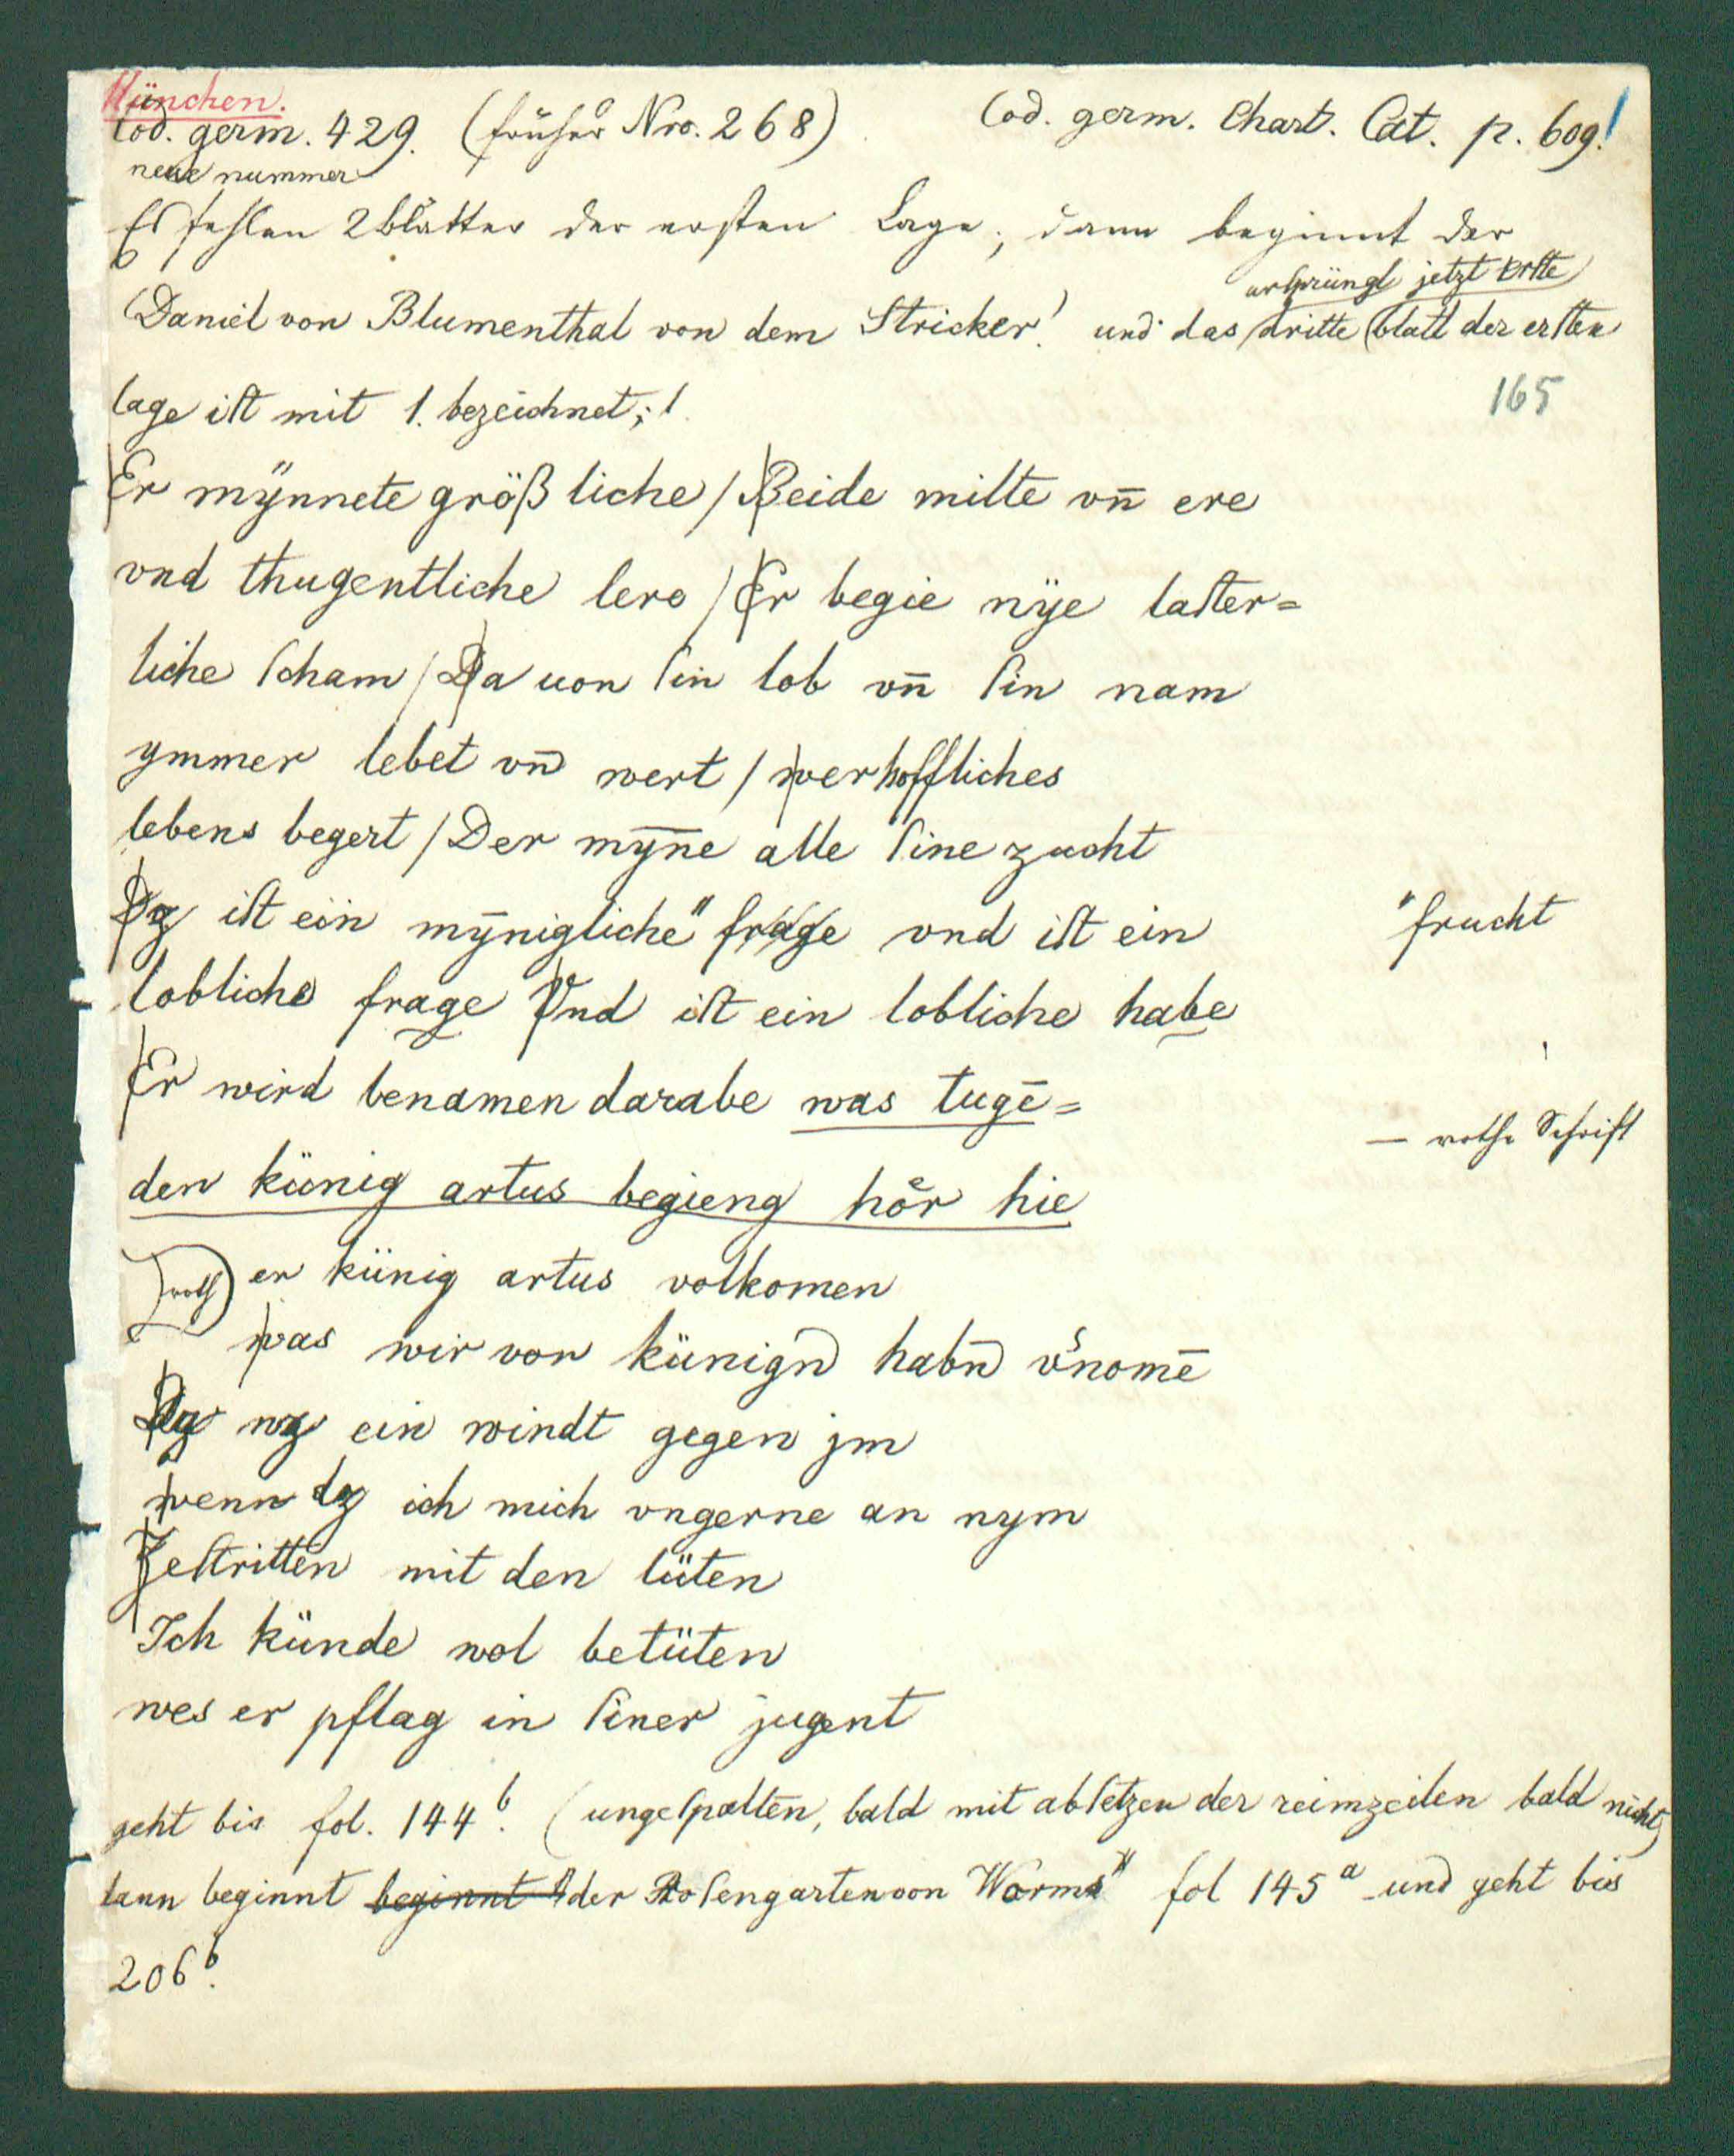 München.
Cod. germ. 429. (früher Nro. 268) Cod. germ. Chart. Cat. p. 609!
neue nummer
Es fehlen 2 blätter der ersten Lage; dann beginnt der
ursprüngl jetzt erſte
Daniel von Blumenthal von dem Stricker! und das dritte blatt der erſten
lage iſt mit 1. bezeichnet;!
165
Er mÿnnete größliche / Beide milte vn̄ ere
vnd thugentliche lere / Er begie nÿe laſter=
liche ſcham / Da uon ſin lob vn̄ ſin nam
ymmer lebet vn̄ wert / wer hoffliches
lebens begert / Der mȳne alle ſine zucht
Dz iſt ein mȳnigliche" frage vnd iſt ein "frucht
lobliche frage Vnd iſt ein lobliche habe
Er wird benamen darabe was tugē=
— rothe Schrift
den künig artus begieng hoͤr hie
D(roth)er künig artus volkomen
was wir von künign̄ habn̄ v'nomē
Dz wz ein windt gegen jm
wenn dz ich mich vngerne an nym
Zeſtritten mit den lüten
Ich künde wol betüten
wes er pflag in ſiner jugent
geht bis fol. 144b. (ungeſpalten, bald mit abſetzen der reimzeilen bald nicht)
dann beginnt beginnt "der Roſengarten von Worms" fol 145a und geht bis
206b.